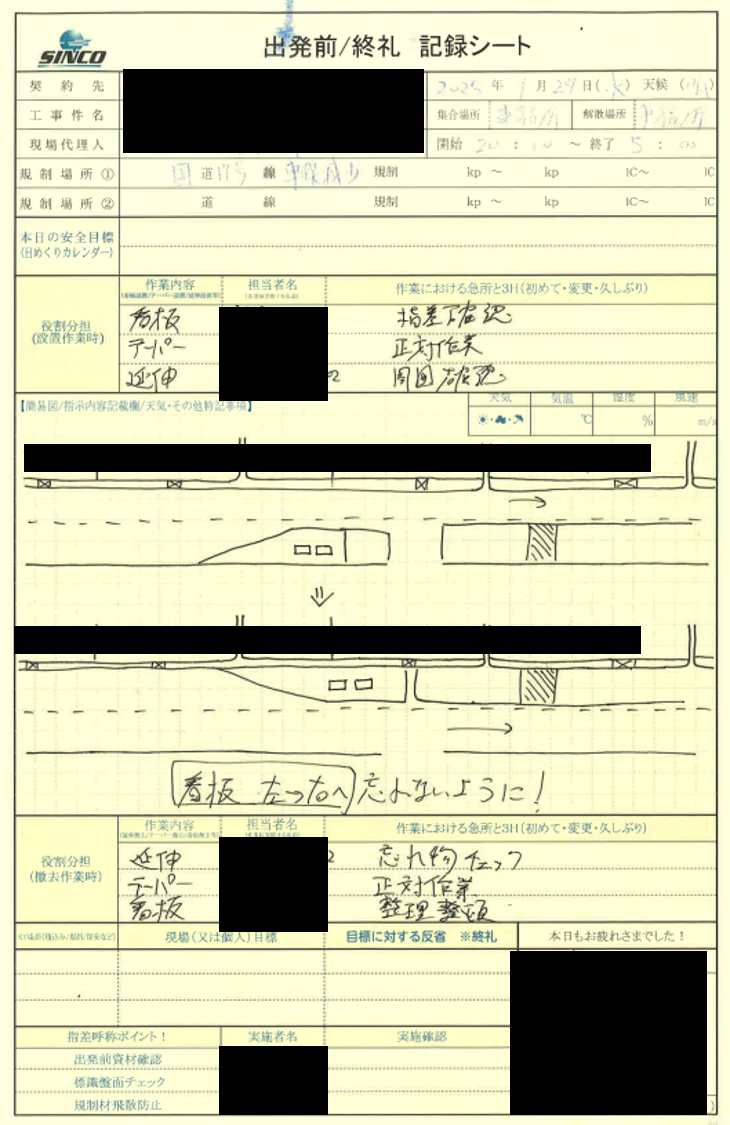 SINCO
出発前/終礼 記録シート
契約先 2025年 1月29日(水) 天候( )
工事件名 集合場所 事務所 解散場所
現場代理人 開始 20:00 ～ 終了 5:00
規制場所① 国道17号 線 車線減少 規制 kp ～ kp IC～ IC
規制場所② 道 線 規制 kp ～ kp IC～ IC
本日の安全目標
(日めくりカレンダー)
役割分担
(設置作業時)
作業内容 担当者名 作業における急所と3H(初めて・変更・久しぶり)
看板 指差確認
テーパー 正対作業
延伸 周囲確認
【簡易図/指示内容記載欄/天気・その他特記事項】
天気 気温 湿度 風速
℃ % m/s
看板 左→右へ 忘れないように!
役割分担
(撤去作業時)
作業内容 担当者名 作業における急所と3H(初めて・変更・久しぶり)
延伸 忘れ物チェック
テーパー 正対作業
看板 整理整頓
現場(又は個人)目標 目標に対する反省 ※終礼 本日もお疲れさまでした!
指差呼称ポイント! 実施者名 実施確認
出発前資材確認
標識盤面チェック
規制材飛散防止